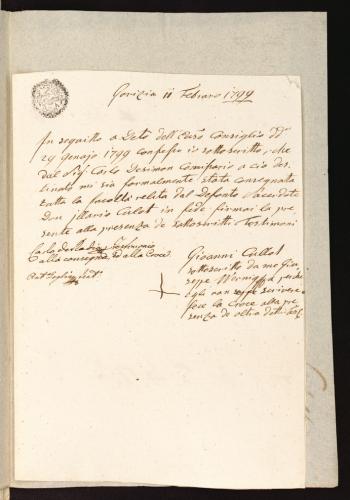 Gorizia 11 Febraro 1799
In seguito a Deto dell' Ces: Consiglio dd:
29 Genajo 1799 confesso io sottoscritto, che
dal Sig: Carlo Desimon Comissario a ciò des-
tinato mi sia formalmente stata consegnata
tutta la facoltà relita dal Defonto Sacerdote
Don Illario Culot in fede firmai la pre-
sente alla presenza de sottoscritti Testimoni
Carlo testimonio
alla consegna ed alla Croce
Giovanni Cullot
sottoscritto da me Giu-
seppe perche
egli non seppe scrivere
fece la Croce alla pre-
senza de oltre detti